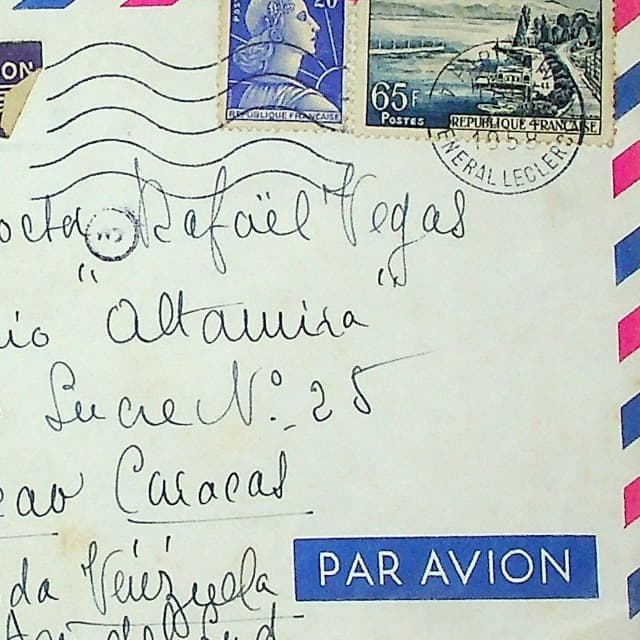 20
ON
REPUBLIQUE FRANÇAISE
65F
POSTES
REPUBLIQUE FRANÇAISE
1958
GENERAL LECLERC
octa Rafaël Vegas
io "Altamira"
Sucre Nº 25
cao Caracas
da Vénézuela
PAR AVION